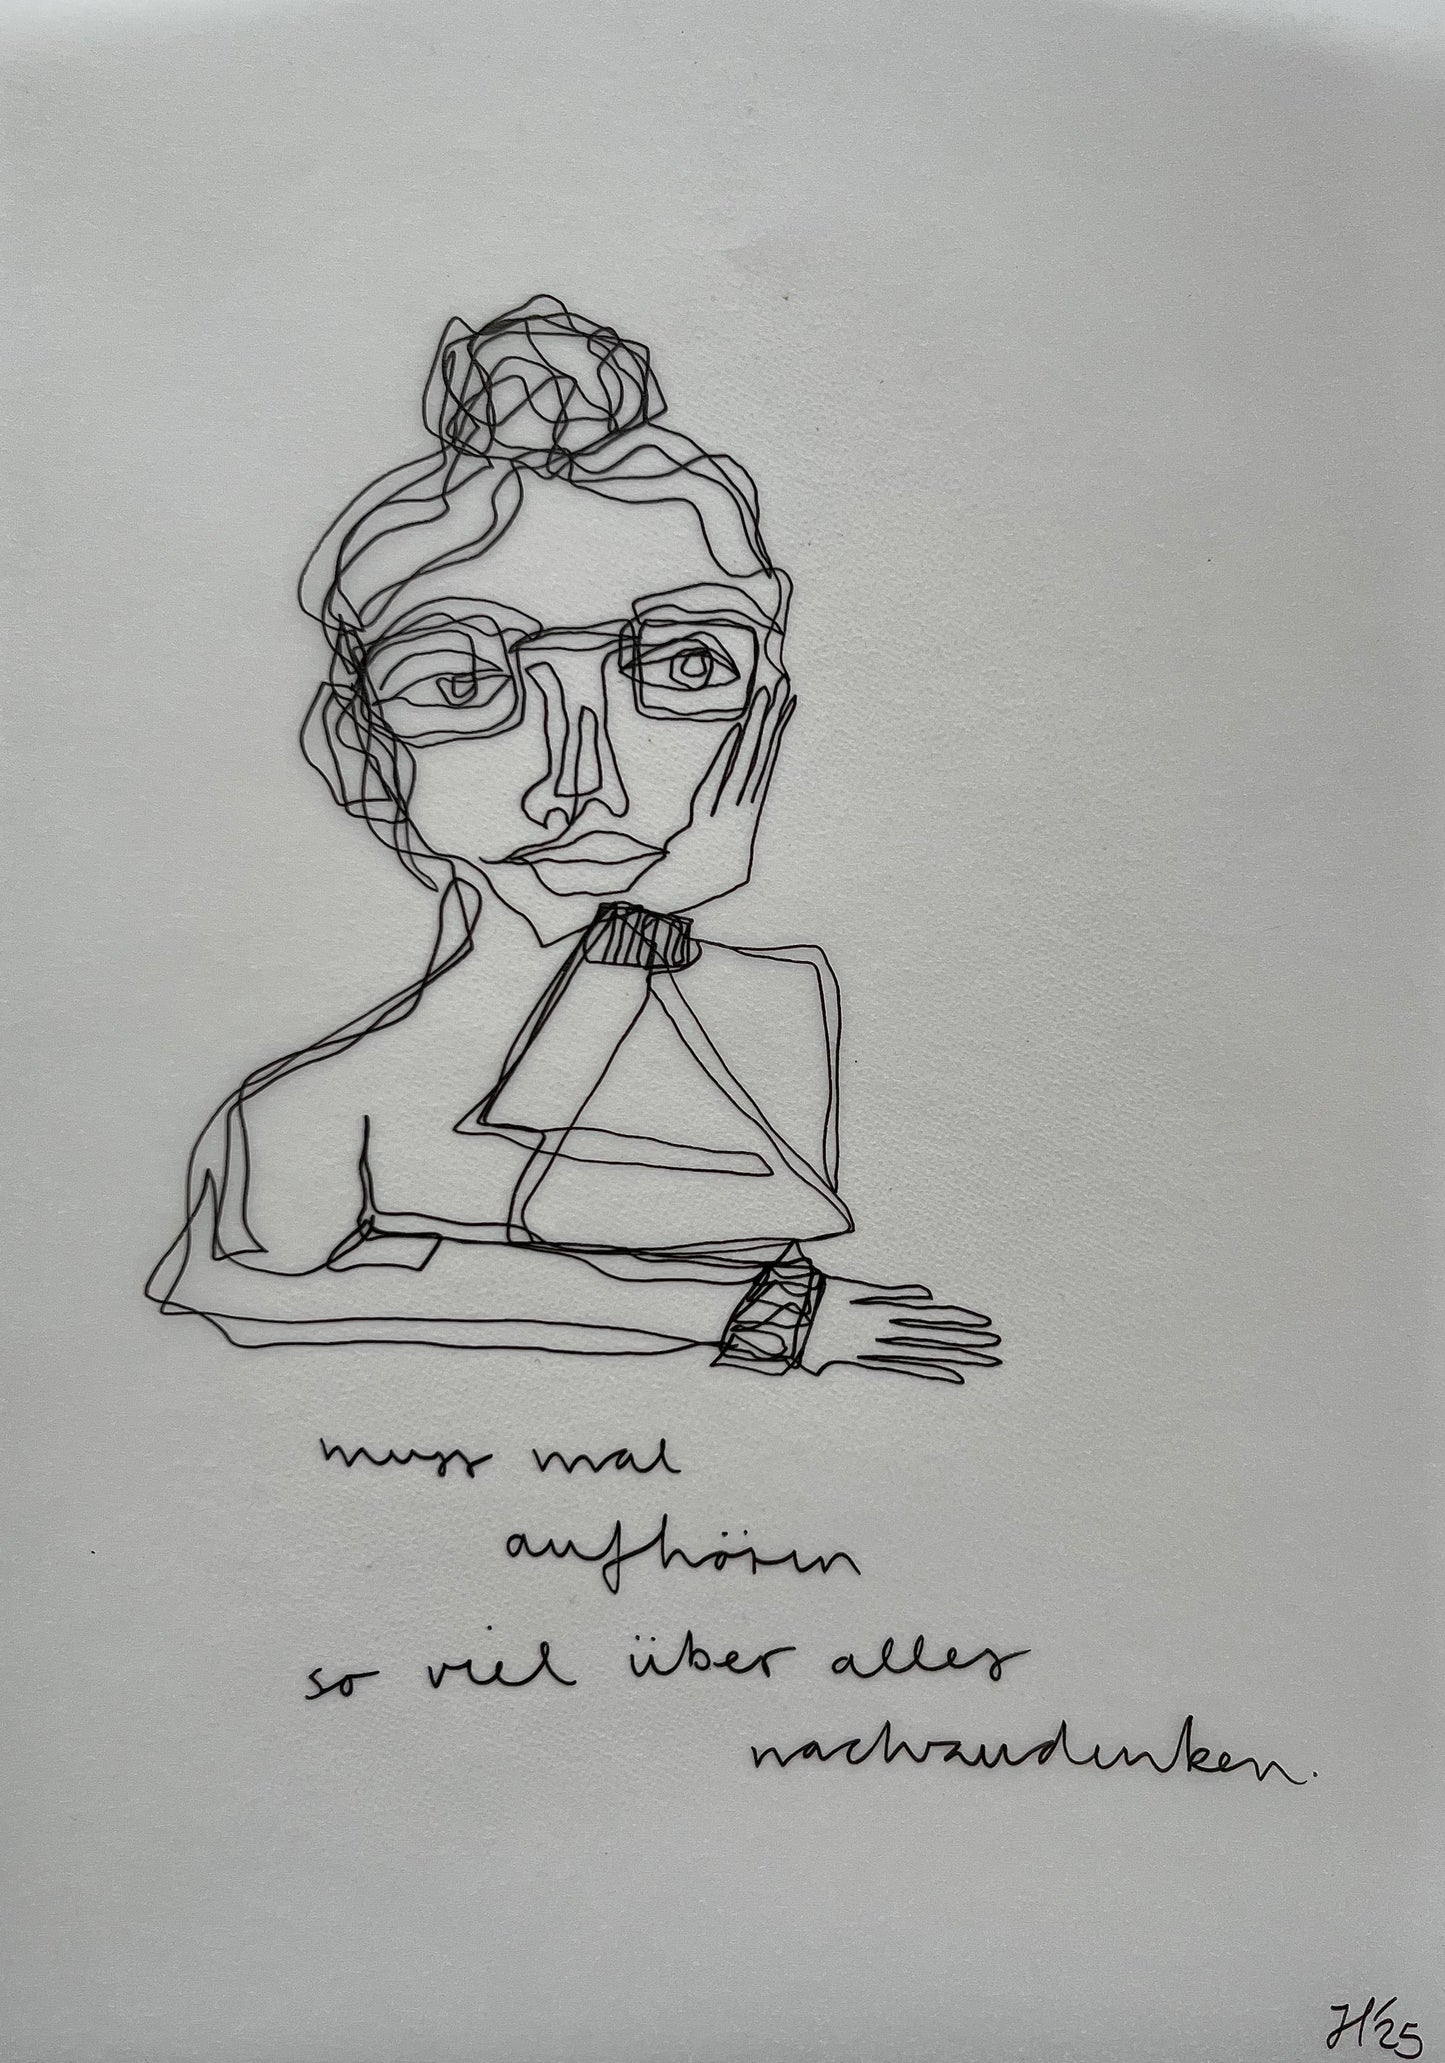 muss mal
aufhören
so viel über alles
nachzudenken.
JH'25